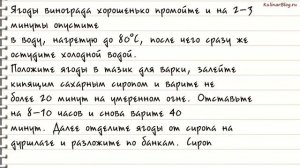 KulinarBlog.ru
Ягоды винограда хорошенько промойте и на 2-3
минуты опустите
в воду, нагретую до 80°С, после чего сразу же
остудите холодной водой.
Положите ягоды в тазик для варки, залейте
кипящим сахарным сиропом и варите не
более 20 минут на умеренном огне. Отставьте
на 8-10 часов и снова варите 40
минут. Далее отделите ягоды от сиропа на
дуршлаге и разложите по банкам. Сироп